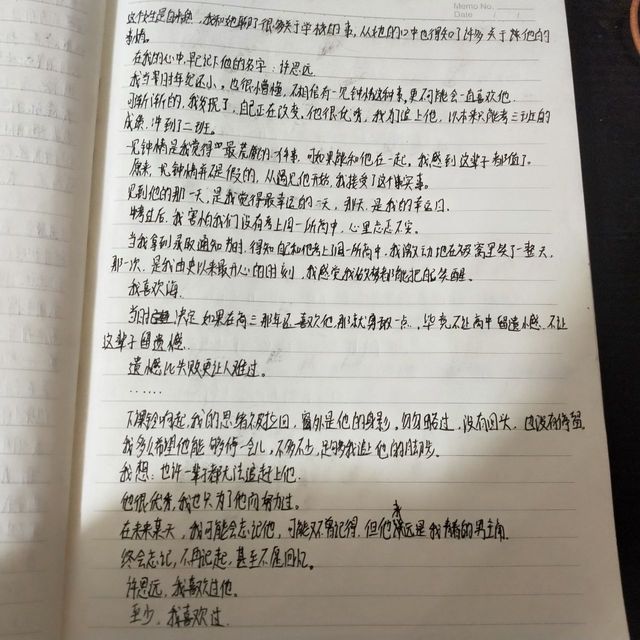 Memo No.
Date / /
这个女生是自来熟，我和她聊了很多关于学校的事，从她的口中也得知了许多关于你他的
事情。
在我的心中早已记下他的名字：许思远
我当时年纪还小，也很懵懂，不相信有一见钟情这种事，更不可能会一直喜欢他.
可渐渐的，我发现了，自己正在改变。他很优秀，我为了追上他，以本来只能考三班的
成绩，冲到了二班。
一见钟情是我觉得最荒酷的一件事，可如果能和他在一起，我感到这辈子都值了。
原来，一见钟情并不是假的，从遇见他开始，我接受了这个事实。
见到他的那一天，是我觉得最幸运的一天，那天，是我的幸运日.
中考过后，我害怕我们没有考上同一所高中，心里忐忑不安。
当我拿到录取通知书时，得知自己和他考上了同一所高中，我激动地在被窝里笑了一整天，
那一次，是我由史以来最开心的时刻，我感觉我做梦都能把自己笑醒。
我喜欢海.
当时决定如果在高三那年还喜欢他，那就勇敢一点，毕竟不让高中留遗憾，不让
这辈子留遗憾.
遗憾比失败更让人难过。
……
下课铃响起，我的思绪被拉回，窗外是他的身影，匆匆略过，没有回头，也没有停留
我多么希望他能够停一会儿，不多不少，足够我追上他的脚步。
我想：也许一辈子都无法追赶上他.
他很优秀，我也只为了他而努力过。
在未来某天，我可能会忘记他，可能不曾记得，但他永远是我青春的男主角
终会忘记，不再记起，甚至不屑回忆。
许思远，我喜欢过他。
至少，我喜欢过.